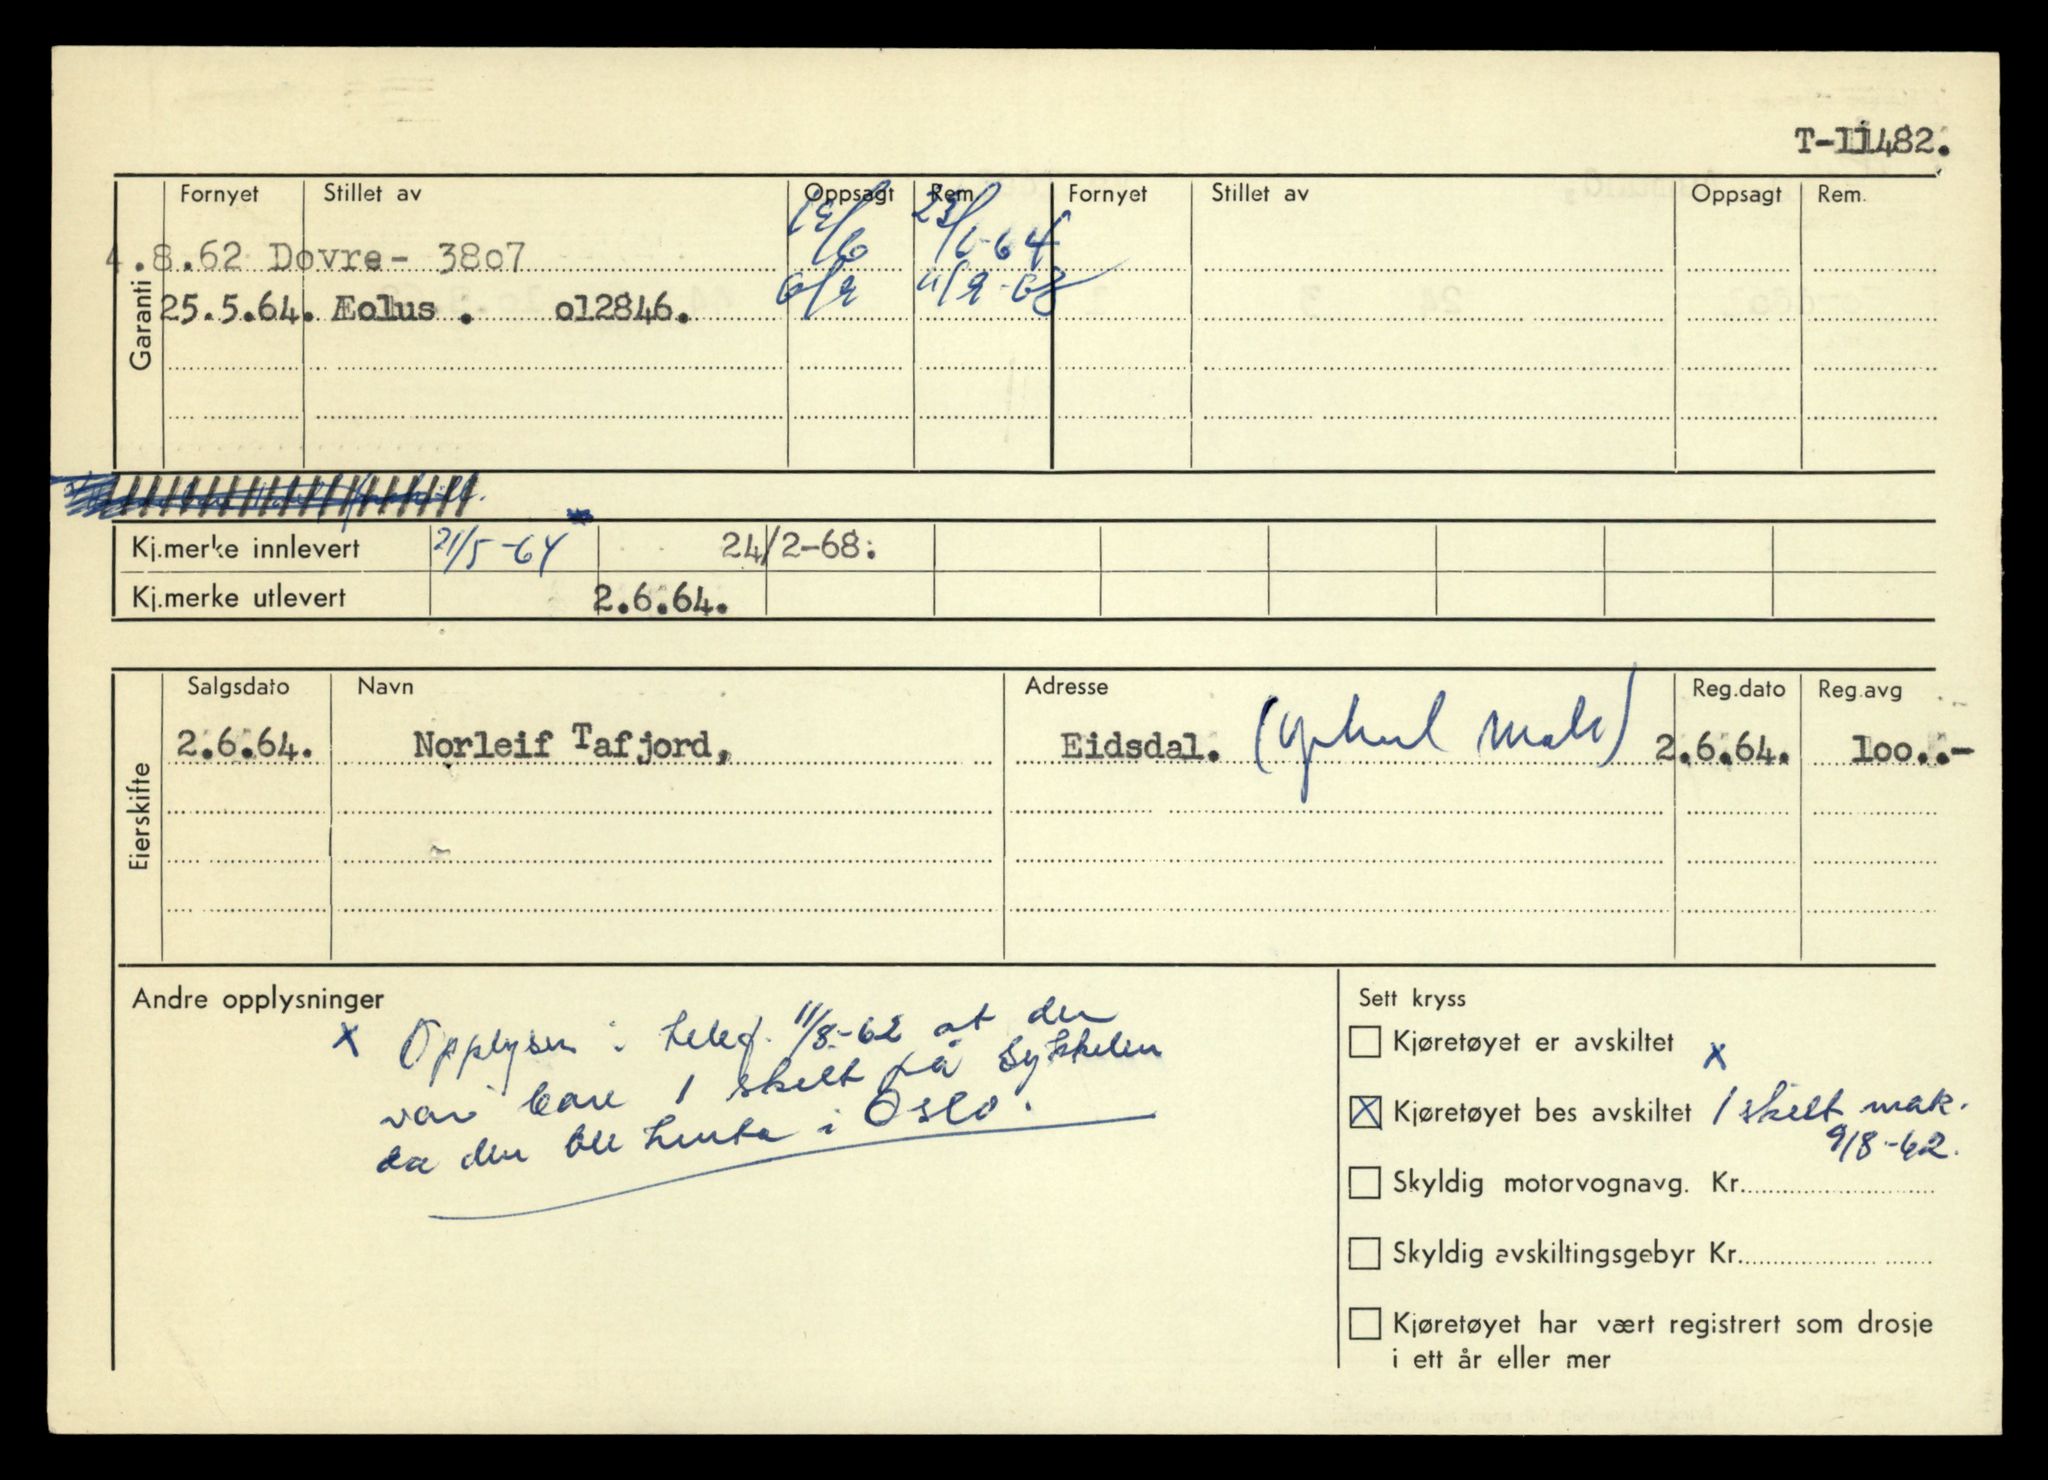 T-11482.
Garanti
Fornyet Stillet av Oppsagt Rem. Fornyet Stillet av Oppsagt Rem.
4.8.62 Dovre- 3807 12/6 23/6-64
25.5.64. Æolus . o12846. 6/2 11/2-68
Kj.merke innlevert 21/5-64 24/2-68.
Kj.merke utlevert 2.6.64.
Eierskifte
Salgsdato Navn Adresse Reg.dato Reg.avg
2.6.64. Norleif Tafjord, Eidsdal. 2.6.64. 100..-
Andre opplysninger
x Opplyser i telef. 11/8-62 at der
var bare 1 skilt på sykkelen
da den ble henta i Oslo.
Sett kryss
Kjøretøyet er avskiltet
x
Kjøretøyet bes avskiltet 1 skilt mak.
9/8-62.
Skyldig motorvognavg. Kr.
Skyldig avskiltingsgebyr Kr.
Kjøretøyet har vært registrert som drosje
i ett år eller mer